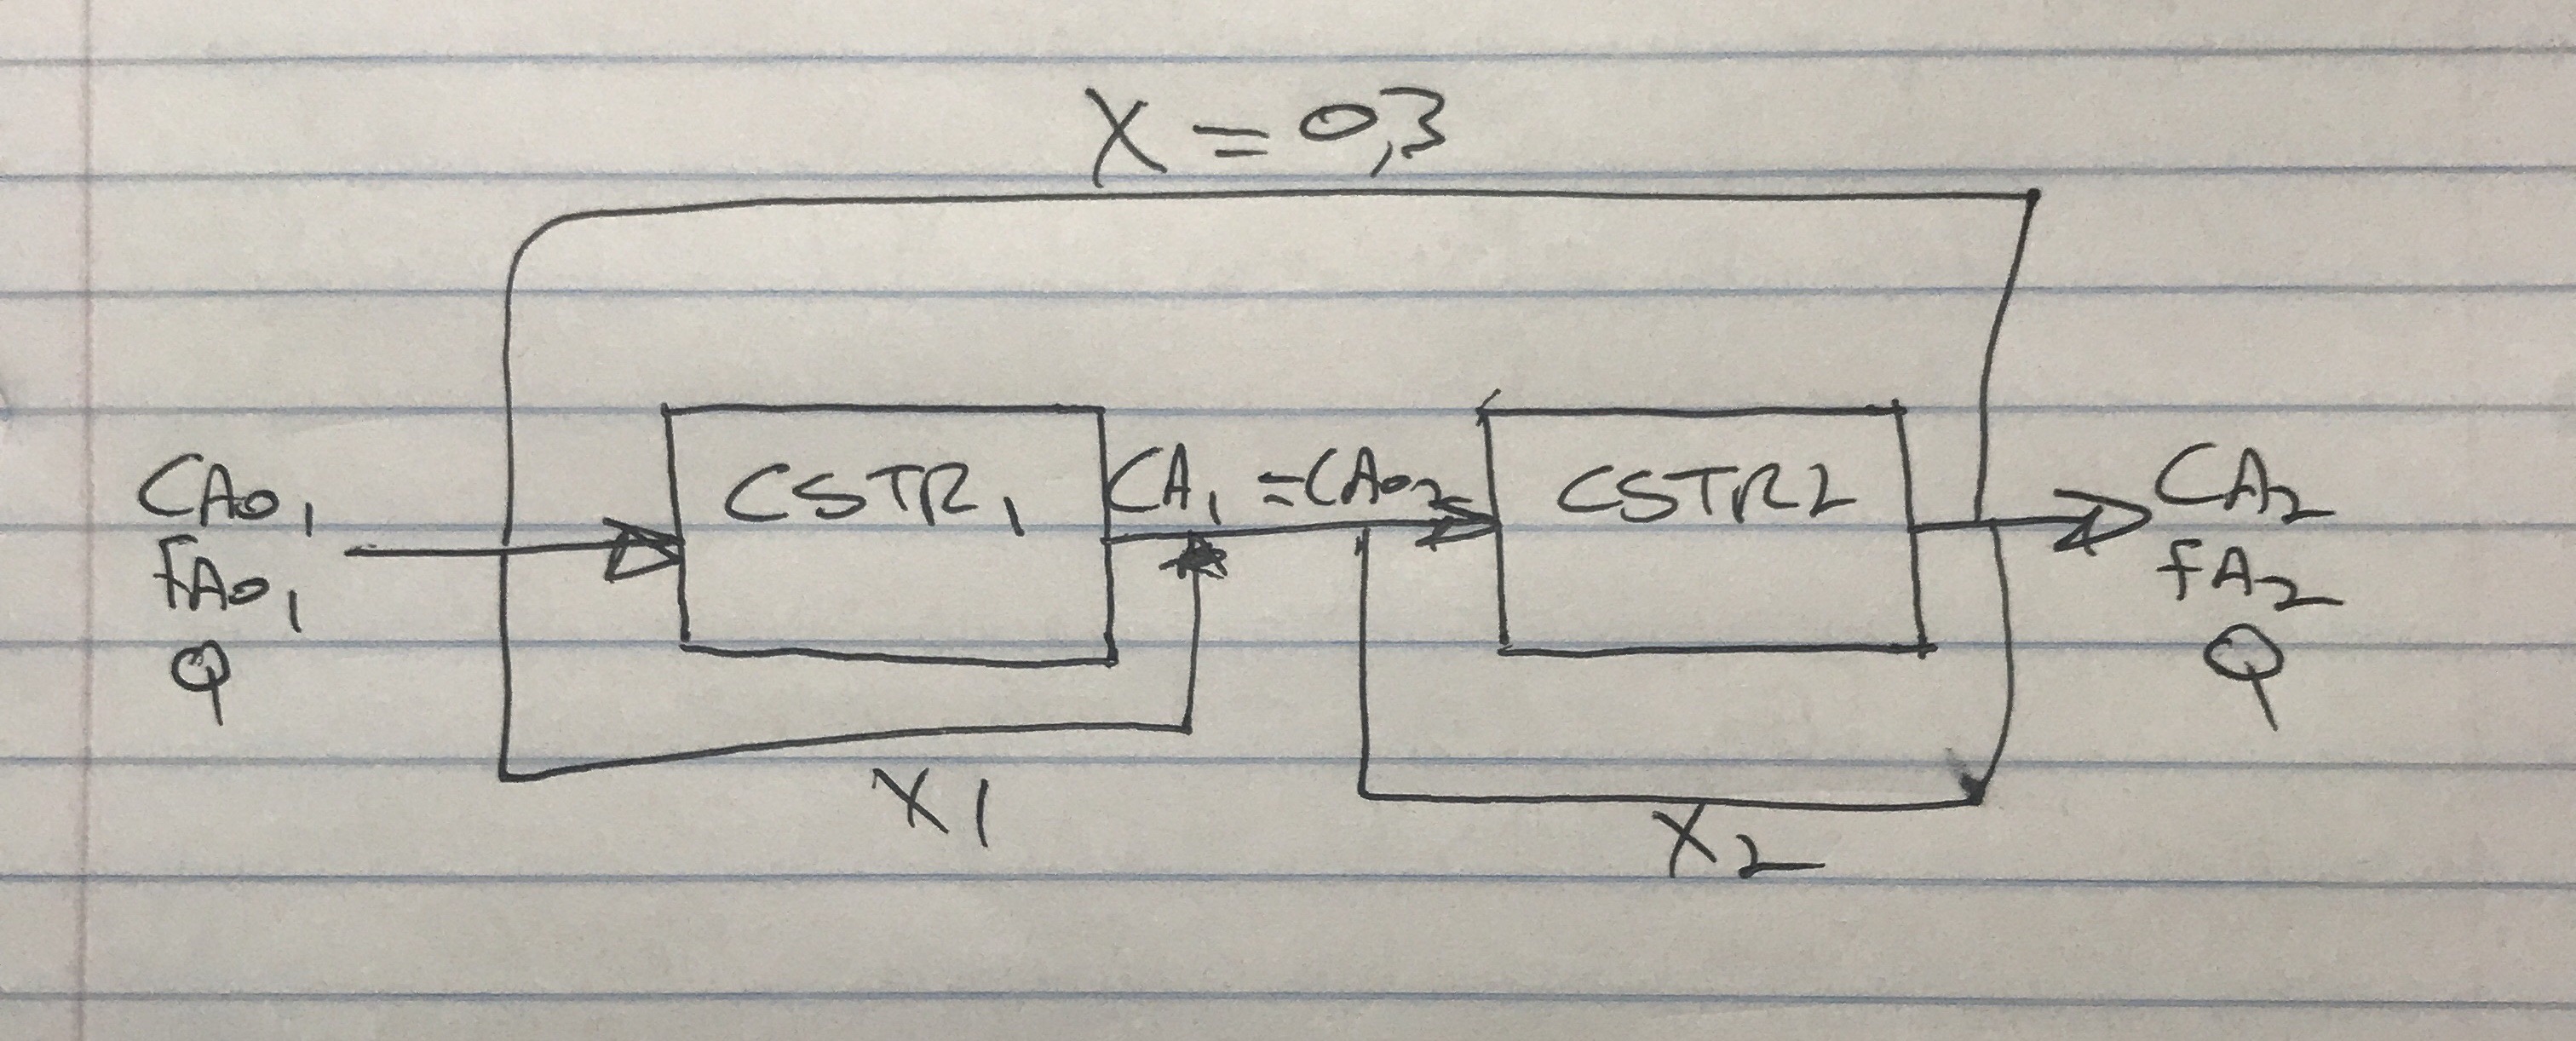 X = 0,3
CA0₁
FA0₁
Q
CSTR₁
CA₁ = CA0₂
CSTR2
CA₂
FA₂
Q
X1
X₂